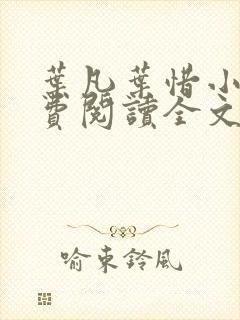 葉凡葉惜小
費閱讀全文
喻東鈴風